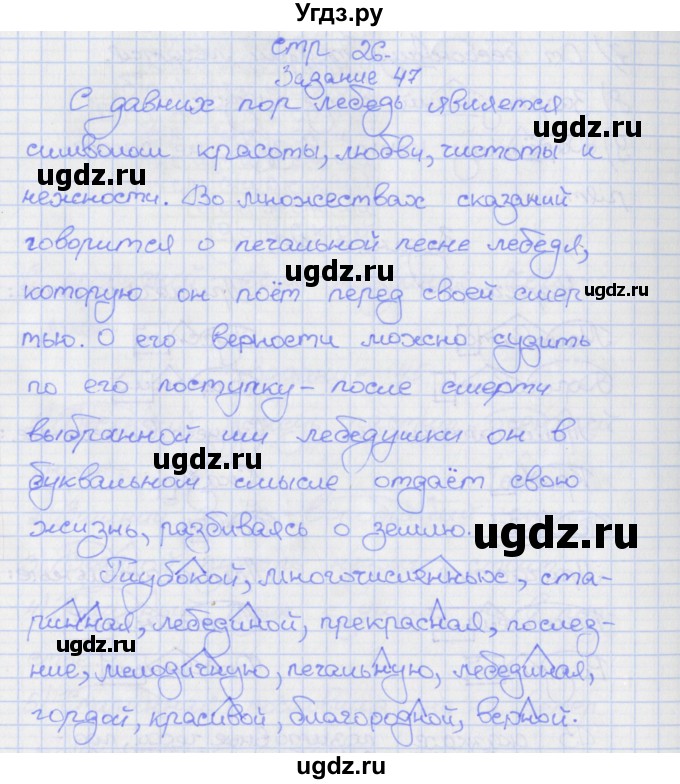 Угдз.ру
стр 26.
Задание 47
С давних пор лебедь является
символом красоты, любви, чистоты и
нежности. Во множествах сказаний
говорится о печальной песне лебедя,
которую он поёт перед своей смер
тью. О его верности можно судить
по его поступку - после смерти
выбранной им лебедушки он в
буквальном смысле отдаёт свою
жизнь, разбиваясь о землю.
Глубокой, многочисленных, ста-
ринная, лебединой, прекрасная, послед-
ние, мелодичную, печальную, лебединая,
гордой, красивой, благородной, верной.
ugdz.ru
ugdz.ru
ugdz.ru
ugdz.ru
ugdz.ru
ugdz.ru
ugdz.ru
ugdz.ru
ugdz.ru